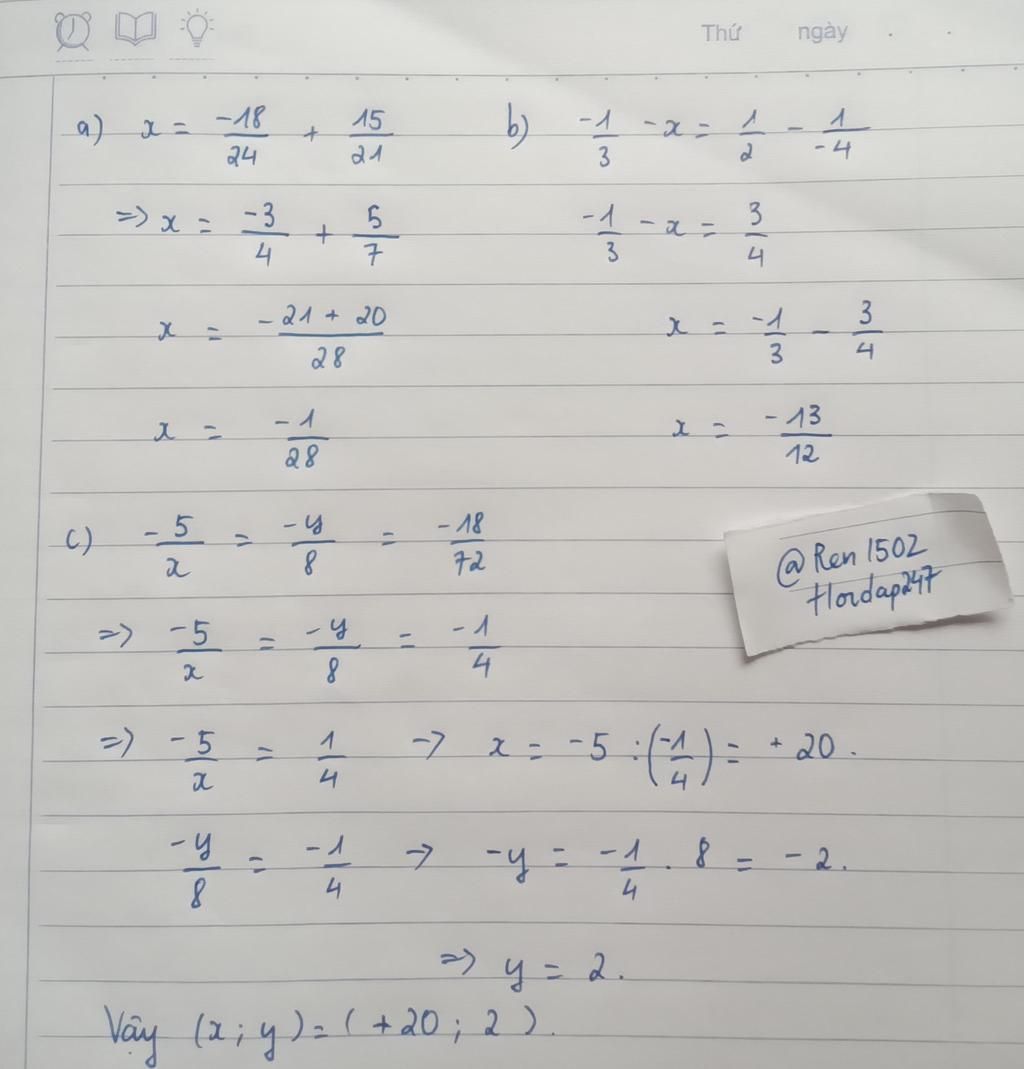 Thứ ngày
a) x = -18/24 + 15/21
=> x = -3/4 + 5/7
x = -21 + 20/28
x = -1/28
b) -1/3 - x = 1/2 - 1/-4
-1/3 - x = 3/4
x = -1/3 - 3/4
x = -13/12
c) -5/x = -y/8 = -18/72
=> -5/x = -y/8 = -1/4
=> -5/x = 1/4 -> x = -5 : (-1/4) = +20.
-y/8 = -1/4 -> -y = -1/4 . 8 = -2.
=> y = 2.
Vậy (x; y) = (+20; 2).
@Ren1502